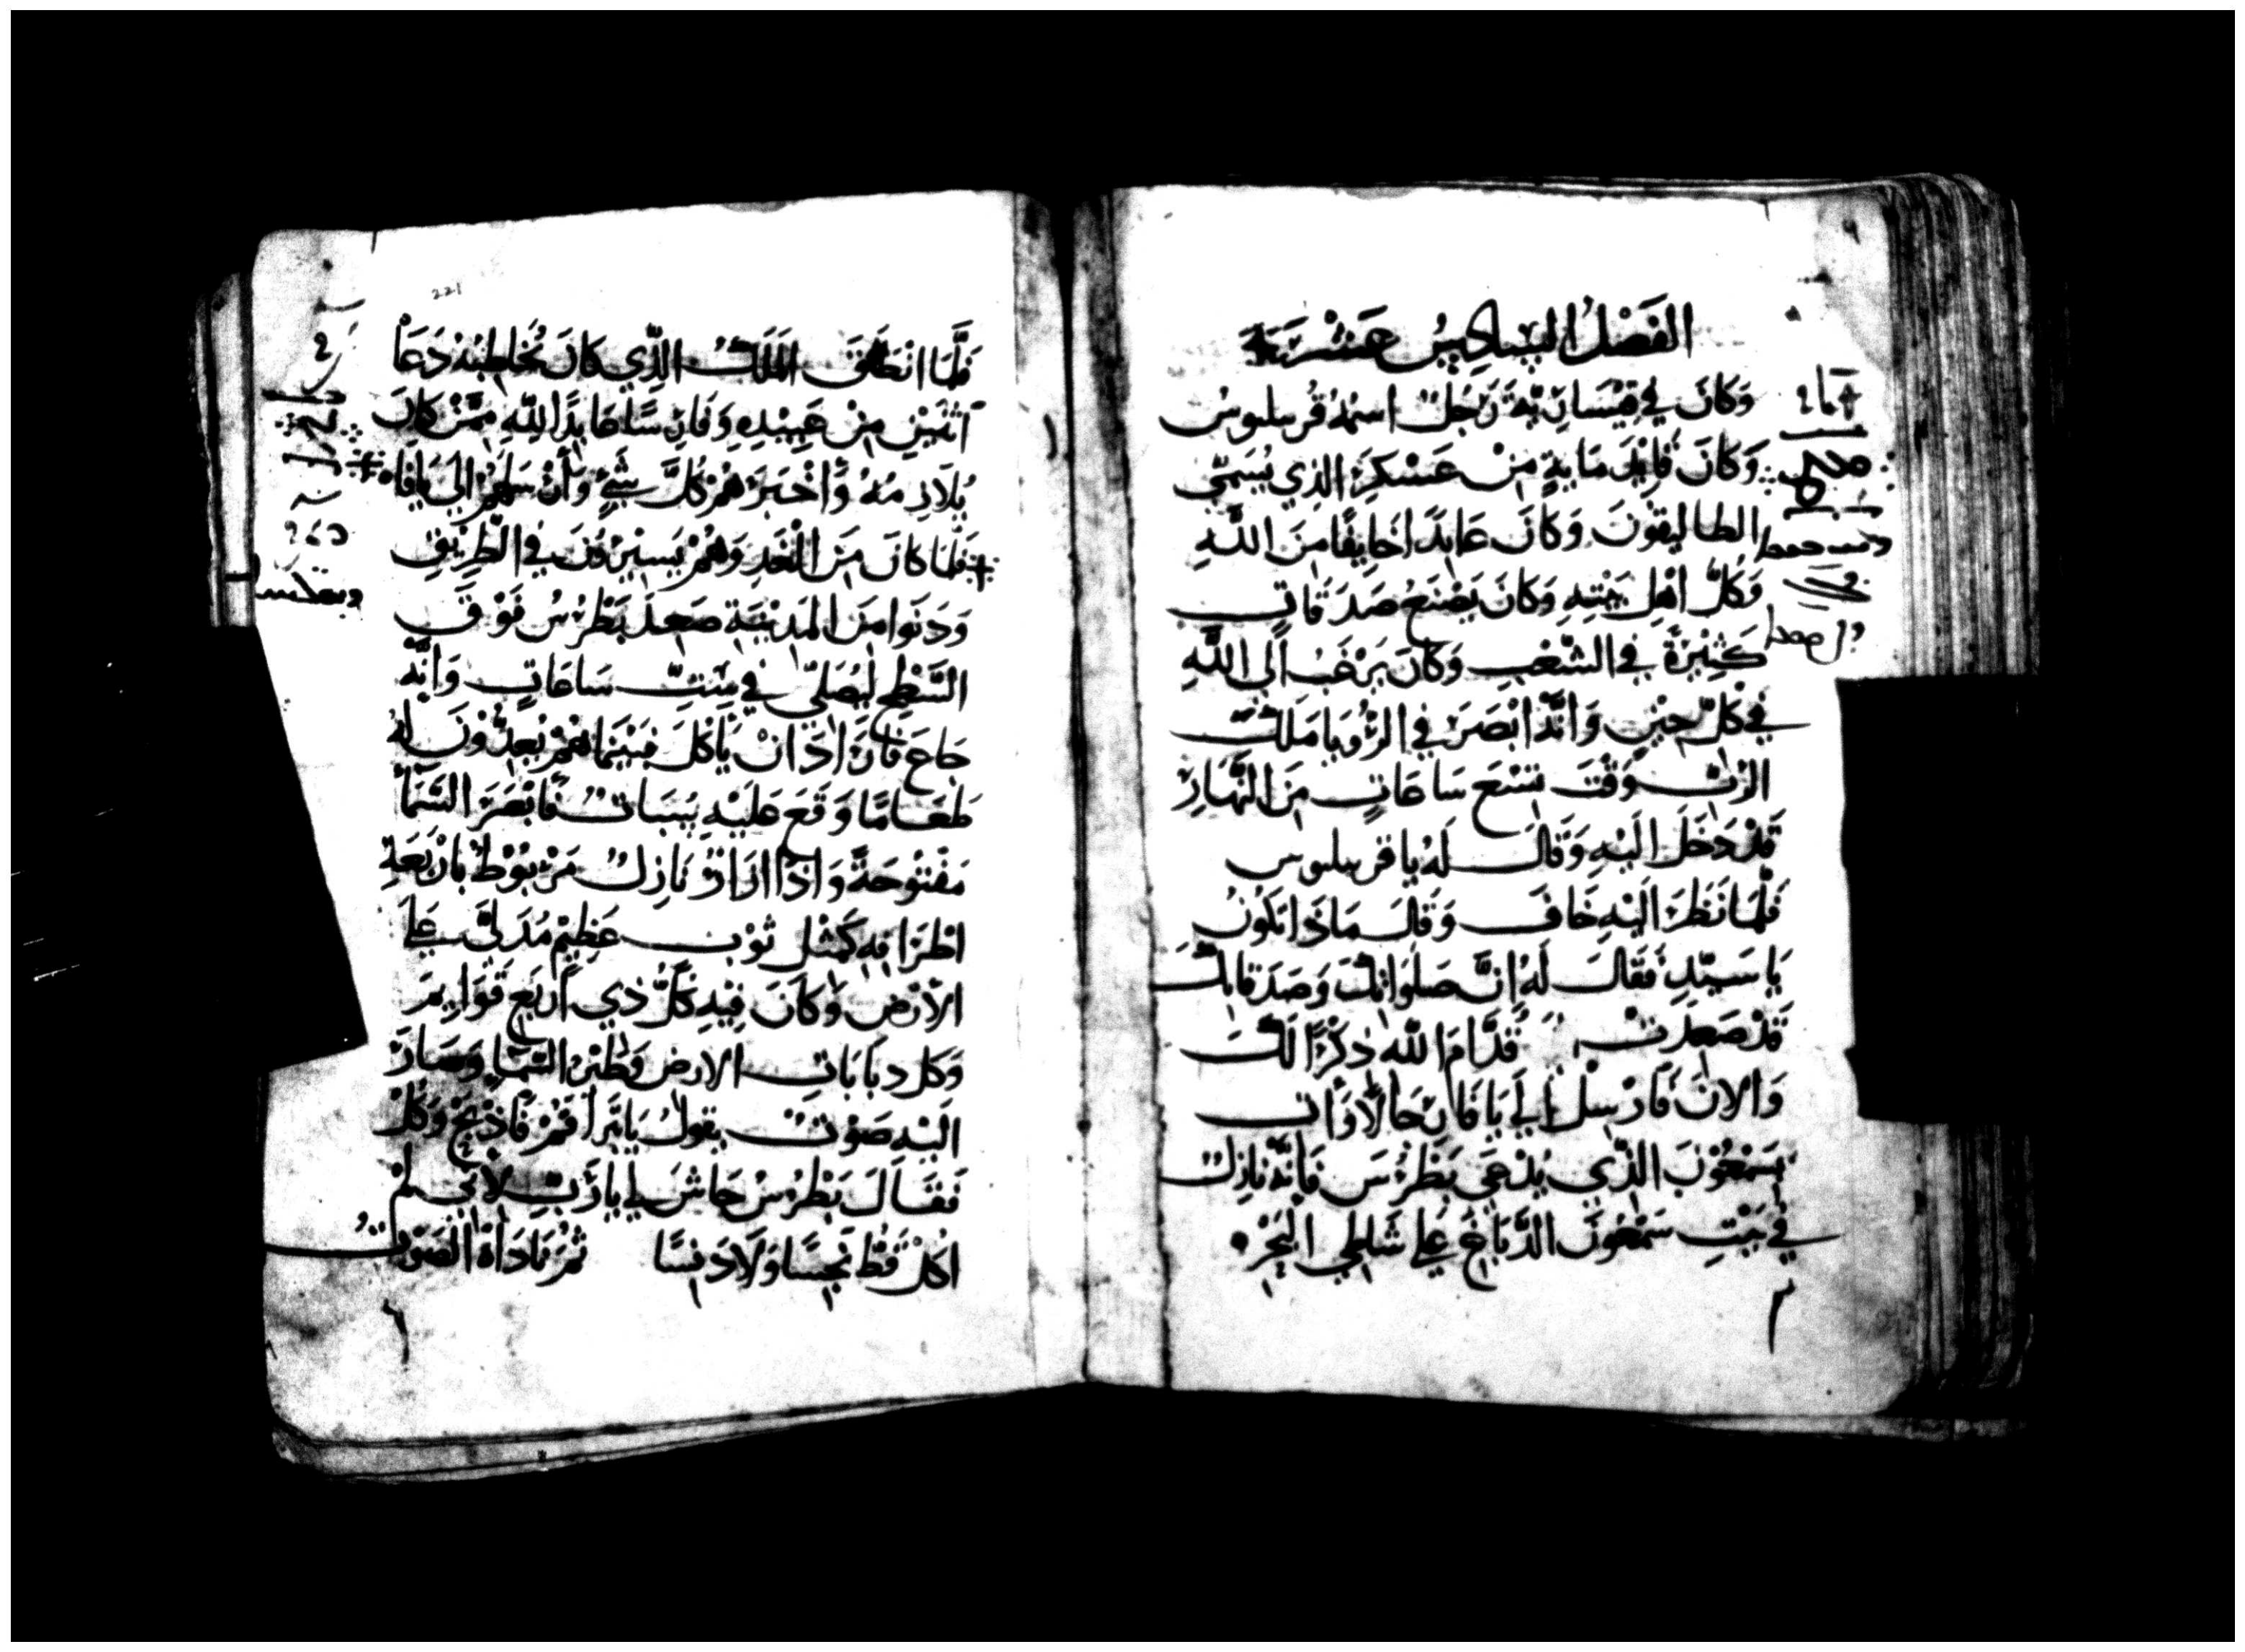 الفَصْلُ السادِسُ عَشْرَة
وَكانَ في قِيْسَارِيّة رَجُلٌ اسمُهُ قُرنيليوسُ
وَكانَ قايِدَ مَايةٍ مِنْ عَسْكَرِ الذي يُسَمّي
الطاليقونَ وَكانَ عَابِدًا خايفًا مِنَ اللَّهِ
وَكُلّ اهْل بَيْتِهِ وَكانَ يَصْنَعُ صَدَقاتٍ
كَثِيْرَةً في الشّعْبِ وَكانَ يَرْغَبُ اَلي اللَّهِ
في كُلّ حِيْنٍ وَانَّهُ ابْصَرَ في الرُّويا مَلَكَ
الرّبِّ وَقْتَ تِسْعَ ساعَاتٍ مِنَ النَّهارِ
قَدْ دَخَلَ الَيْهِ وَقَالَ لَهُ يا قرنيليوس
فَلَمّا نَظَرَ الَيْهِ خَافَ وَقالَ مَاذَا تكُونُ
يَا سَيّدِ فَقَالَ لَهُ اِنَّ صَلَوَاتكَ وَصَدَقاتكَ
قَدْ صَعِدَتْ قُدَّامَ اللّه ذِكْرًا لَكَ
وَالانَ فَارْسِلْ اِلَي يَافَا رِجَالًا وَات
بسَمْعُوْنَ الذّي يُدْعَي بَطْرُسَ فَاِنّهُ نازِلٌ
في بَيْتِ سَمْعُونَ الدَّبَّاغ عَلي شَاطِي البَحْرِ
فَلَّمَا انْطَلَقَ المَلَكُ الذّي كانَ يُخَاطِبُهُ دَعَا
اثنَيْنِ مِنْ عَبِيْدِهِ وَفارِسًا عَابِدًا للّهِ مِمَّنْ كانَ
يُلَازِمُهُ وَأَخْبَرَهُمْ كُلَّ شَيءٍ وَأَرْسَلَهُمْ اِلَي يَافَا
فَلَمّا كانَ مِنَ الْغَدِ وَهُمْ يَسِيْرُوْنَ في الطَّرِيْقِ
وَدَنَوا مِنَ المَدِيْنَةِ صَعِدَ بَطْرُسُ فَوْقَ
السَّطْحِ لِيُصَلّي في سِتّ سَاعَاتٍ وَانَّهُ
جَاعَ فَارَادَ انْ يَأكُلَ فبَيْنَمَا هُمْ يُعِدُّوْنَ لَهُ
طَعَامًا وَقَعَ عَلَيْهِ سُبَاتٌ فَابْصَرَ السَّمَأ
مَفْتُوْحَةً وَاذَا ازَارٌ نَازِلٌ مَرْبُوْطٌ بِارْبَعَةِ
اطْرَافِهِ كَمثْل ثَوْبٍ عَظِيْمٍ مُدَلّيً عَلي
الأَرْضِ وَكَانَ فِيْهِ كُلُّ ذِي أَرْبَعِ قَوَايِمَ
وَكل دبّابَاتِ الارضِ وَطَيْرُ السَّمَاء وَصَارَ
الَيْهِ صَوْتٌ يقولُ يَا بَطْرُسُ قُمْ فَاذْبَحْ وَكُلْ
فَقَالَ بَطْرُسُ حَاشَ لي يَا رَبِّ لِأَنّي لَمْ
اكُلْ قَطُّ نَجِسًا وَلَا دَنِسًا ثُمّ نَادَاهُ الصَوْتُ
221